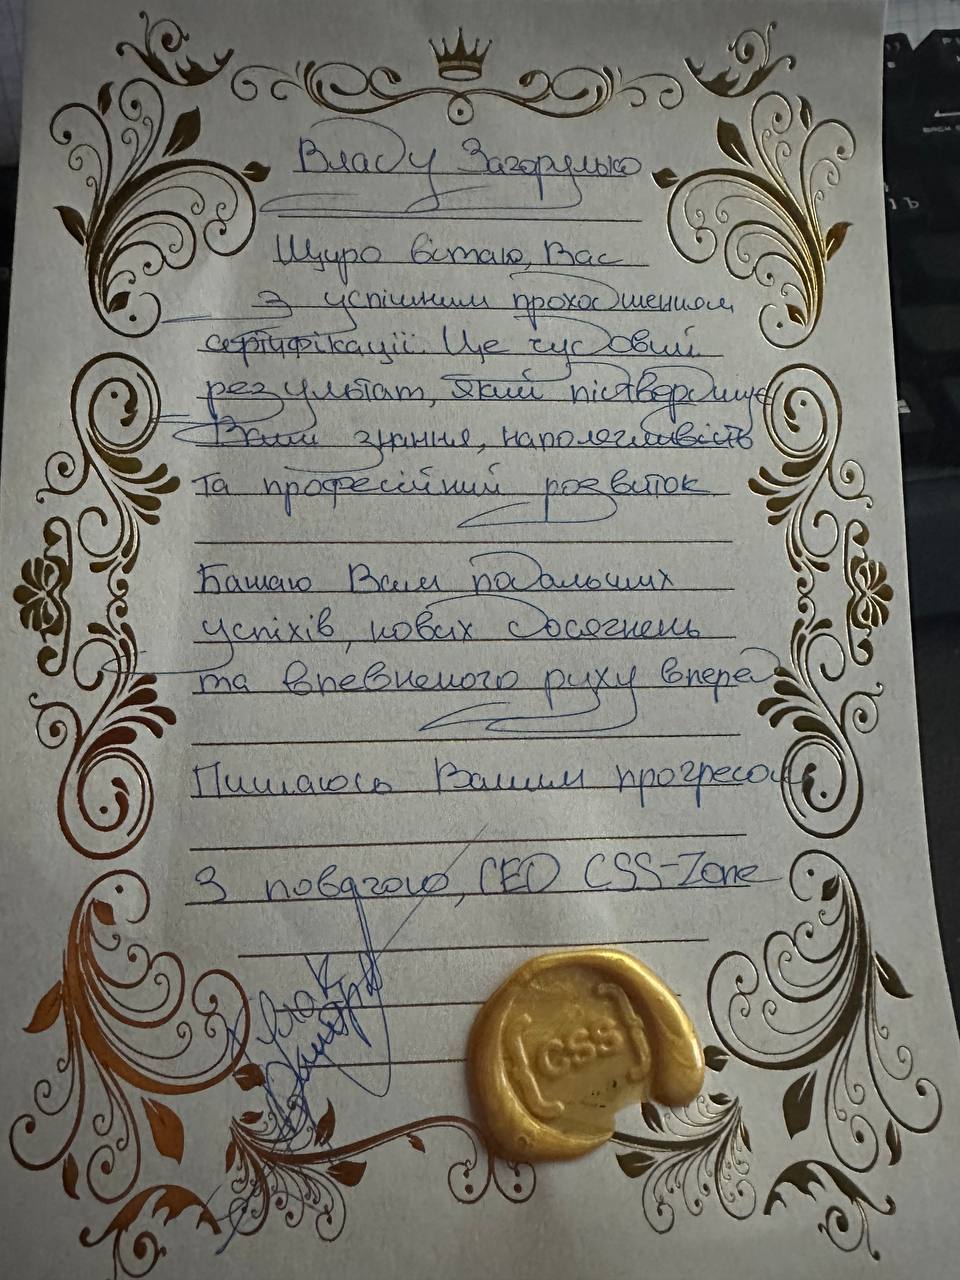 Владу Загорулько
Щиро вітаю, Вас
з успішним проходшенням
сертифікації. Це чудовий
результат, який підтверджує
Ваші знання, наполегливість
та професійний розвиток
Бажаю Вам подальших
успіхів, нових досягнень
та впевненого руху вперед
Пишаюсь Вашим прогресом
З повагою, CEO CSS-Zone
{CSS}